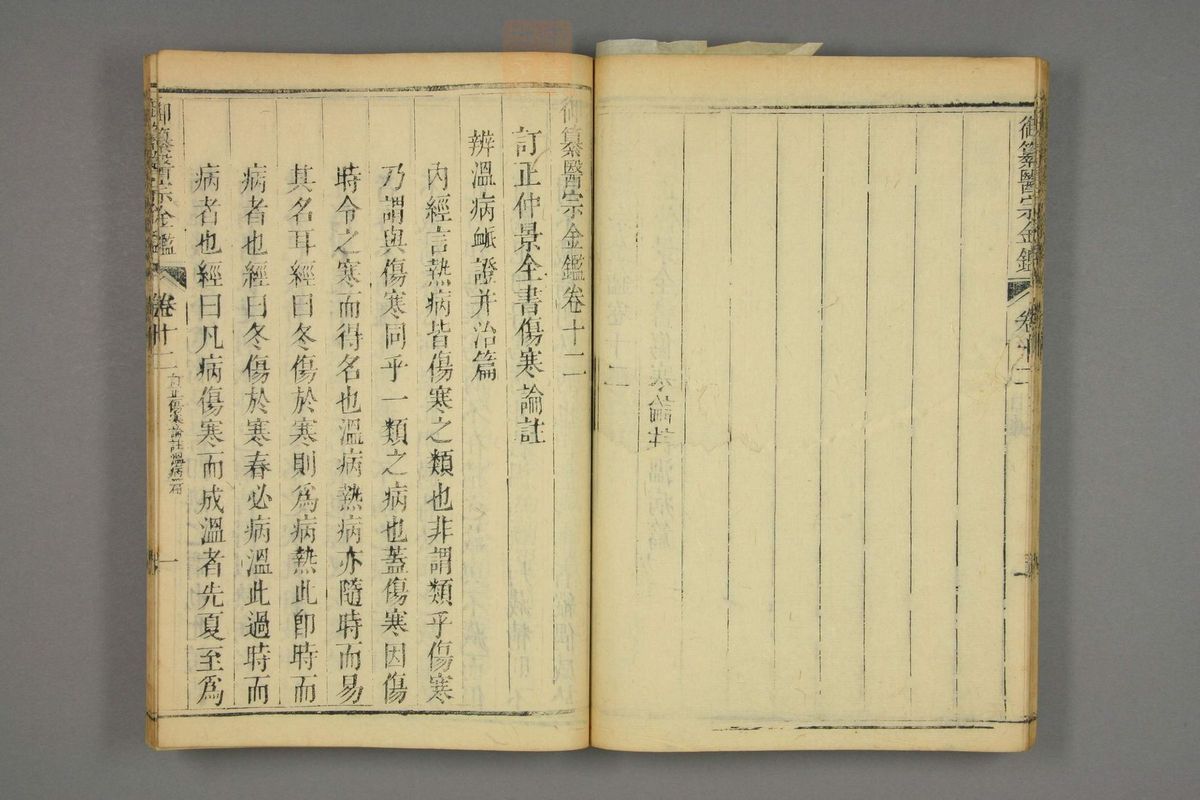 御纂醫宗金鑑 卷十二
御纂醫宗金鑑卷十二
訂正仲景全書傷寒論註
辨溫病脈證并治篇
內經言熱病皆傷寒之類也非謂類乎傷寒
乃謂與傷寒同乎一類之病也蓋傷寒因傷
時令之寒而得名也溫病熱病亦隨時而易
其名耳經曰冬傷於寒則爲病熱此卽時而
病者也經曰冬傷於寒春必病溫此過時而
病者也經曰凡病傷寒而成溫者先夏至爲
御纂醫宗金鑑 卷十二 訂正傷寒論註溫病篇 一